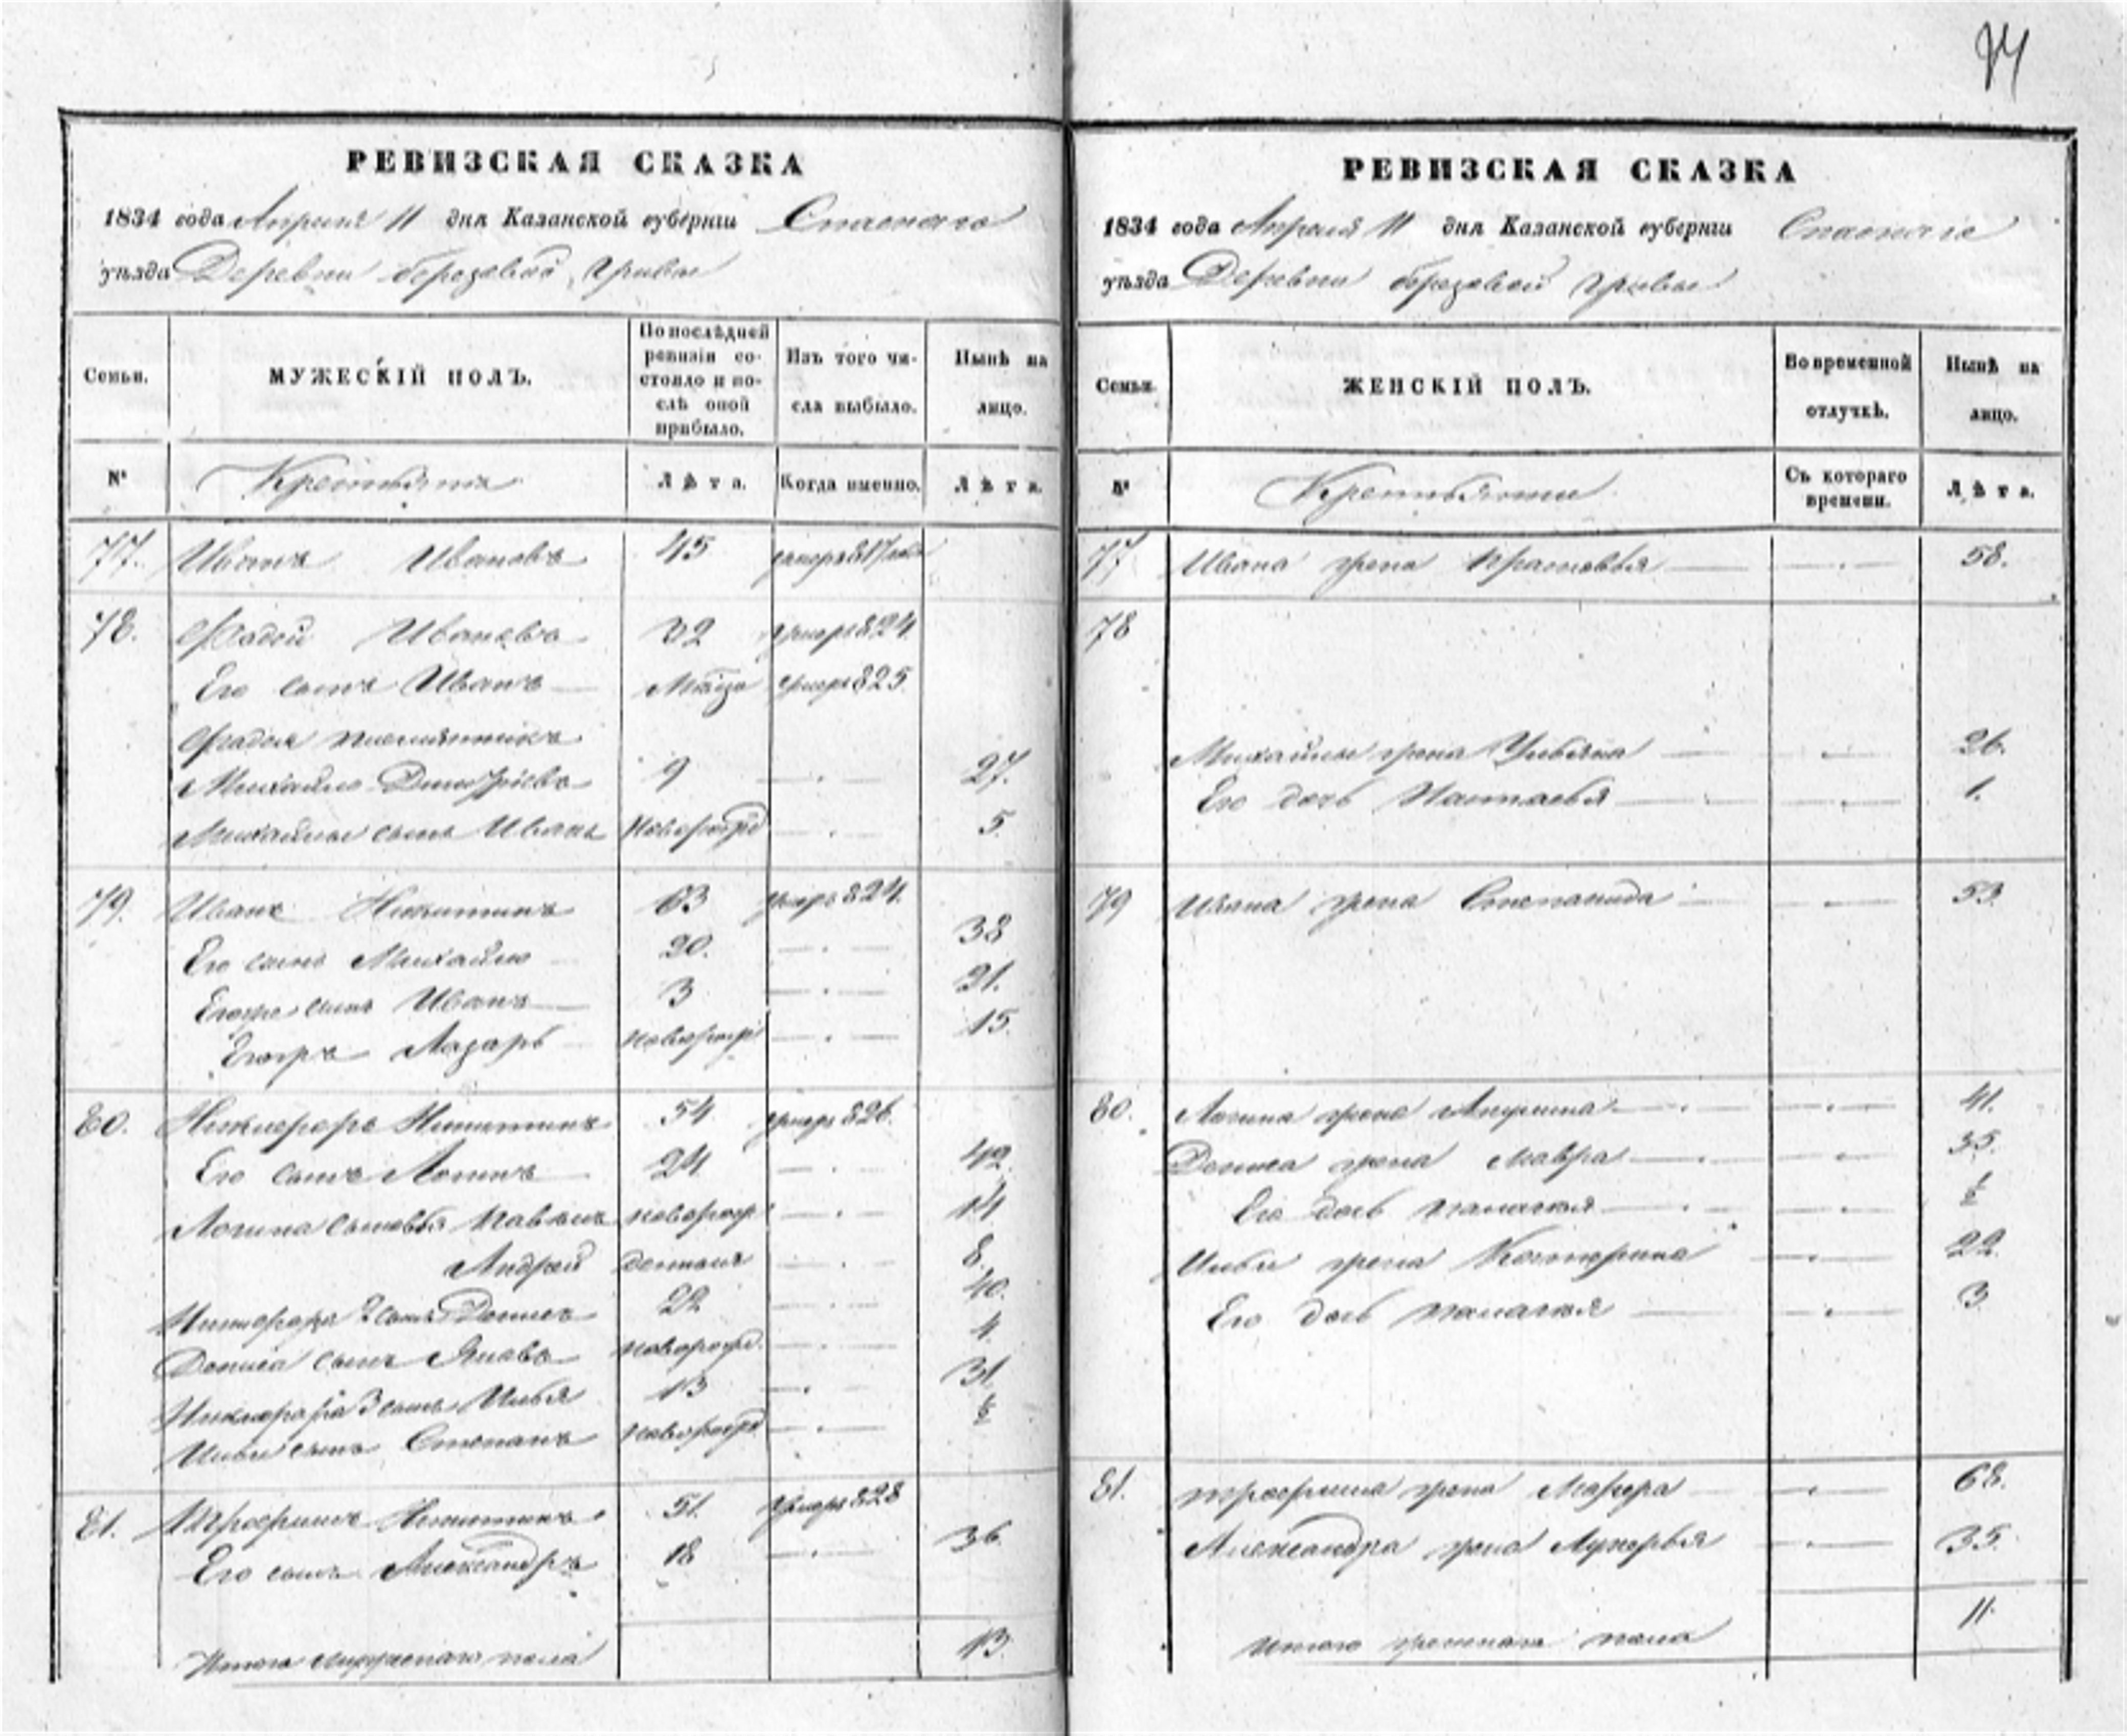 74
РЕВИЗСКАЯ СКАЗКА
1834 года Апреля 11 дня Казанской губернии Спаскаго
уѣзда Деревни березовой гривы
Семьи. МУЖЕСКІЙ ПОЛЪ. По послѣдней ревизіи состояло и послѣ оной прибыло. Изъ того числа выбыло. Нынѣ на лицо.
№ Крестьянъ Лѣта. Когда именно. Лѣта.
77. Иванъ Ивановъ 45
78. Фадей Ивановъ 32 умеръ 824
Его сынъ Иванъ умеръ 825
Фадея племянникъ
Михайло Дмитріевъ 9 27.
Михайлы сынъ Иванъ новорожд 5.
79. Иванъ Никитинъ 63 умеръ 824.
Его сынъ Михайло 20. 38
Егоже сынъ Иванъ 3 21.
Егожъ Лазарь новорожд 15.
80. Никифоръ Никитинъ 54 умеръ 826.
Его сынъ Логинъ 24 42.
Логина сыновья Павелъ новорожд 14.
Андрей 8.
Никифора 2 сынъ Денисъ 22 40.
Дениса сынъ Яковъ новорожд. 4.
Никифора 3 сынъ Илья 13 31.
Ильи сынъ Степанъ новорожд ½
81. Трофимъ Никитинъ 51. умеръ 828
Его сынъ Александръ 18 36.
Итого мужескаго пола 13.
РЕВИЗСКАЯ СКАЗКА
1834 года Апреля 11 дня Казанской губерніи Спаскаго
уѣзда Деревни березовой гривы
Семьи. ЖЕНСКІЙ ПОЛЪ. Во временной отлучкѣ. Нынѣ на лицо.
№ Съ котораго времени. Лѣта.
77 Ивана жена Прасковья 58.
78
Михайлы жена Ульяна 26.
Его дочь Настасья 1.
79 Ивана жена Степанида 53.
80. Логина жена Акулина 41.
Дениса жена Мавра 35.
Его дочь Палагея ½
Ильи жена Катерина 22.
Его дочь Палагея 3
81. Трофима жена 68.
Александра жена Лукерья 35.
Итого женскаго пола 11.